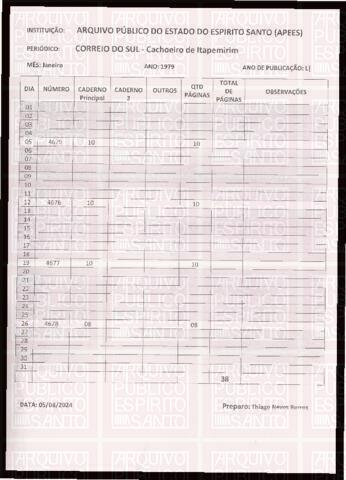 INSTITUIÇÃO: ARQUIVO PÚBLICO DO ESTADO DO ESPIRITO SANTO (APEES)
PERIÓDICO: CORREIO DO SUL - Cachoeiro de Itapemirim
MÊS: Janeiro ANO: 1979 ANO DE PUBLICAÇÃO: L|
DIA NÚMERO CADERNO Principal CADERNO 2 OUTROS QTD PÁGINAS TOTAL DE PÁGINAS OBSERVAÇÕES
01
02
03
04
05 4675 10 10
06
07
08
09
10
11
12 4676 10 10
13
14
15
16
17
18
19 4677 10 10
20
21
22
23
24
25
26 4678 08 08
27
28
29
30
31
38
DATA: 05/08/2024 Preparo: Thiago Neves Barros
ARQUIVO PÚBLICO ESPIRITO SANTO